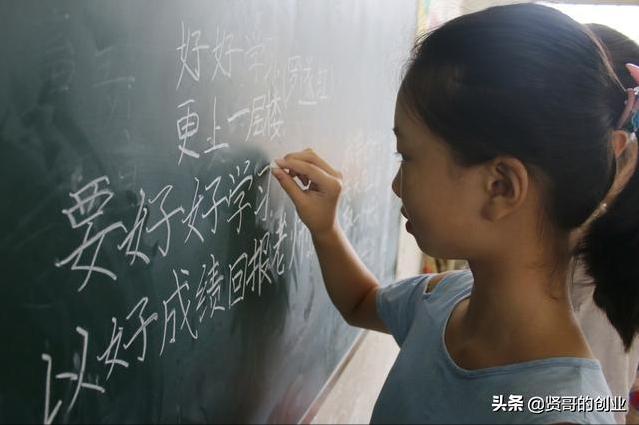 好好学习
更上一层楼
要好好学习
以好成绩回报老师
头条 @贤哥的创业